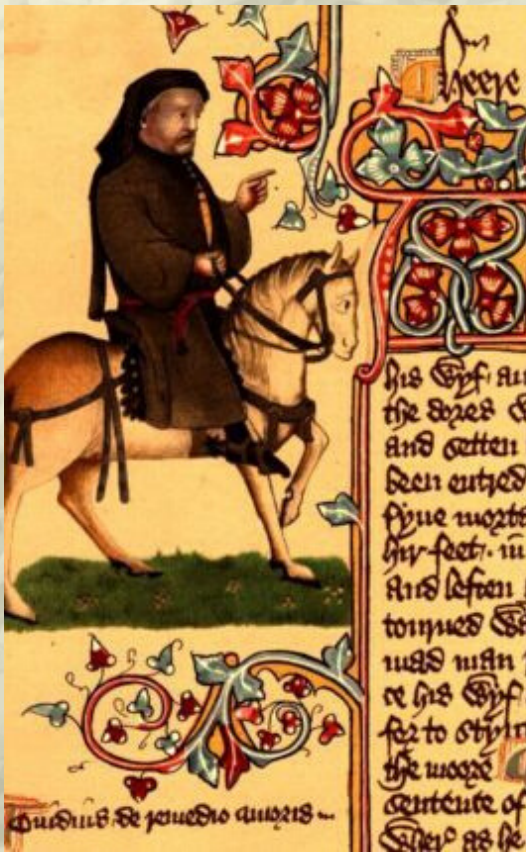 Heere
his wyf / an
the dores
and setten
been entred
fyue morta
hir feet / in
and leften
tourned wa
mad man
ce his wyf
for to stynt
the moore
sentence of
wher as he
Ouidius de remedio amoris